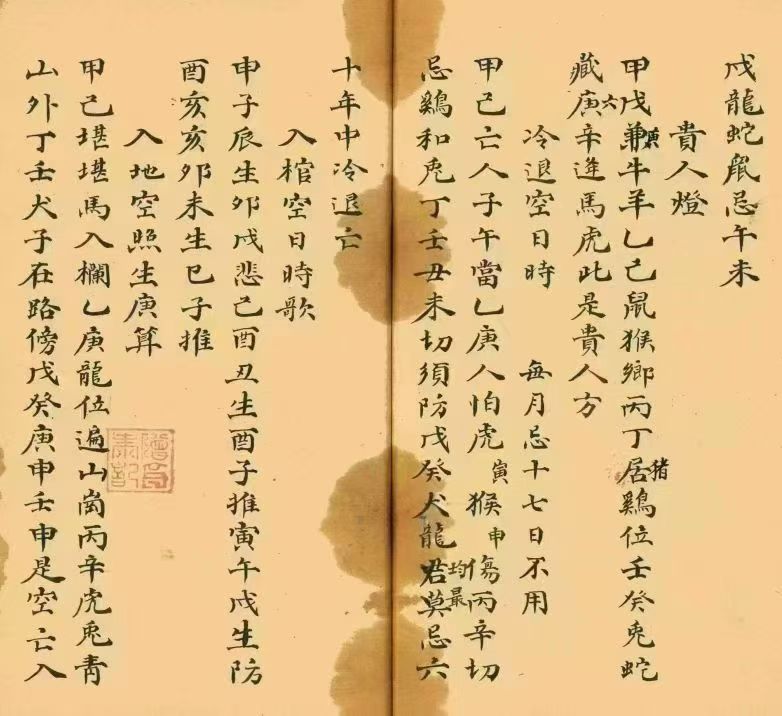 戊龍蛇鼠忌午未
貴人燈
甲戊庚兼牛羊乙己鼠猴鄉丙丁居猪鷄位壬癸兔蛇
藏庚六辛逢馬虎此是貴人方
冷退空日時 每月忌十七日不用
甲己亡人子午當乙庚人怕虎寅猴申傷丙辛切
忌鷄和兔丁壬丑未切須防戊癸犬龍均最君莫忌六
十年中冷退亡
入棺空日時歌
申子辰生卯戌悲己酉丑生酉子推寅午戌生防
酉亥亥卯未生巳子推
入地空照生庚算
甲己堪堪馬入欄乙庚龍位遍山崗丙辛虎兔青
山外丁壬犬子在路傍戊癸庚申壬申是空亡入